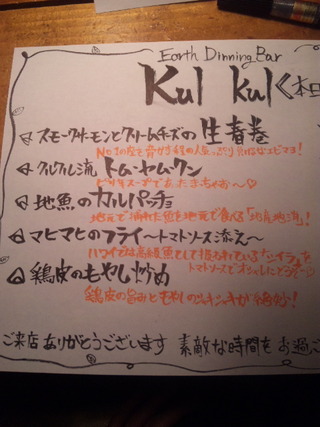 Earth Dinning Bar
Kul Kul く本日
スモークサーモンとクリームチーズの生春巻
クルクル流 トム・ヤム・クン
ピリ辛スープであったまっちゃお〜♡
地魚のカルパッチョ
地元で捕れた魚を地元で食べる「地産地消」!
マヒマヒのフライ〜トマトソース添え〜
ハワイでは高級魚として扱われている「シイラ」を
トマトソースでオシャレにどうぞ〜
鶏皮のもやし炒め
鶏皮の旨みともやしのシャキシャキが絶妙!
ご来店ありがとうございます 素敵な時間をお過ご